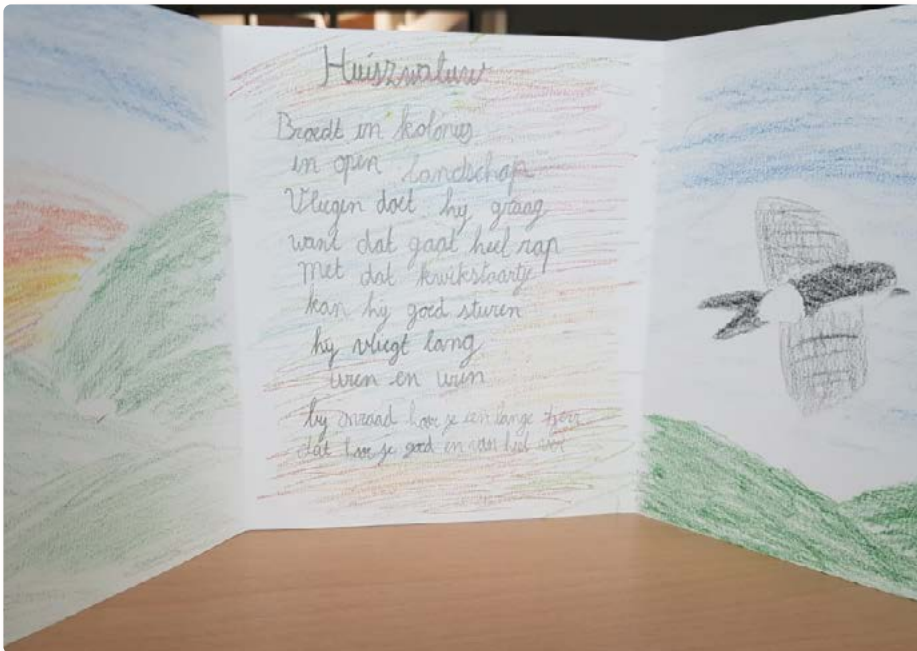 Huiszwaluw
Broedt in kolonies
in open landschap
Vliegen doet hij graag
want dat gaat heel rap
Met dat kwikstaartje
kan hij goed sturen
hij vliegt lang
uren en uren
bij onraad hoor je een lange trerr
dat hoor je goed en van heel ver